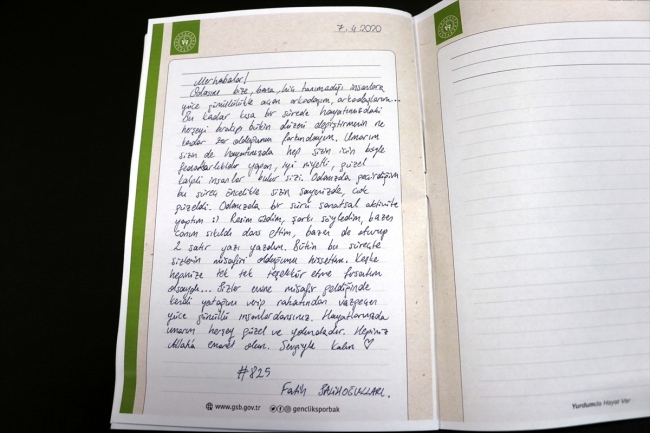 7.4.2020
Merhabalar!
Odasını bize, bana, hiç tanımadığı insanlara
yüce gönüllülükle açan arkadaşım, arkadaşlarım...
Bu kadar kısa bir sürede hayatınızdaki
herşeyi bırakıp bütün düzeni değiştirmenin ne
kadar zor olduğunun farkındayım. Umarım
sizin de hayatınızda hep sizin için böyle
fedakarlıklar yapan, iyi niyetli, güzel
kalpli insanlar bulur sizi. Odanızda geçirdiğim
bu süreç öncelikle sizin sayenizde, çok
güzeldi. Odanızda bir sürü sanatsal aktivite
yaptım :) Resim çizdim, şarkı söyledim, bazen
canım sıkıldı dans ettim, bazen de oturup
2 satır yazı yazdım. Bütün bu süreçte
sizlerin misafiri olduğumu hissettim. Keşke
hepinize tek tek teşekkür etme fırsatım
olsaydı... Sizler evine misafir geldiğinde
kendi yatağını verip rahatından vazgeçen
yüce gönüllü insanlardansınız. Hayatlarınızda
umarım herşey güzel ve yolundadır. Hepiniz
Allaha emanet olun. Sevgiyle kalın ♡
#825
Fatih SALİHOĞULLARI.
www.gsb.gov.tr gencliksporbak
Yurdumda Hayat Var